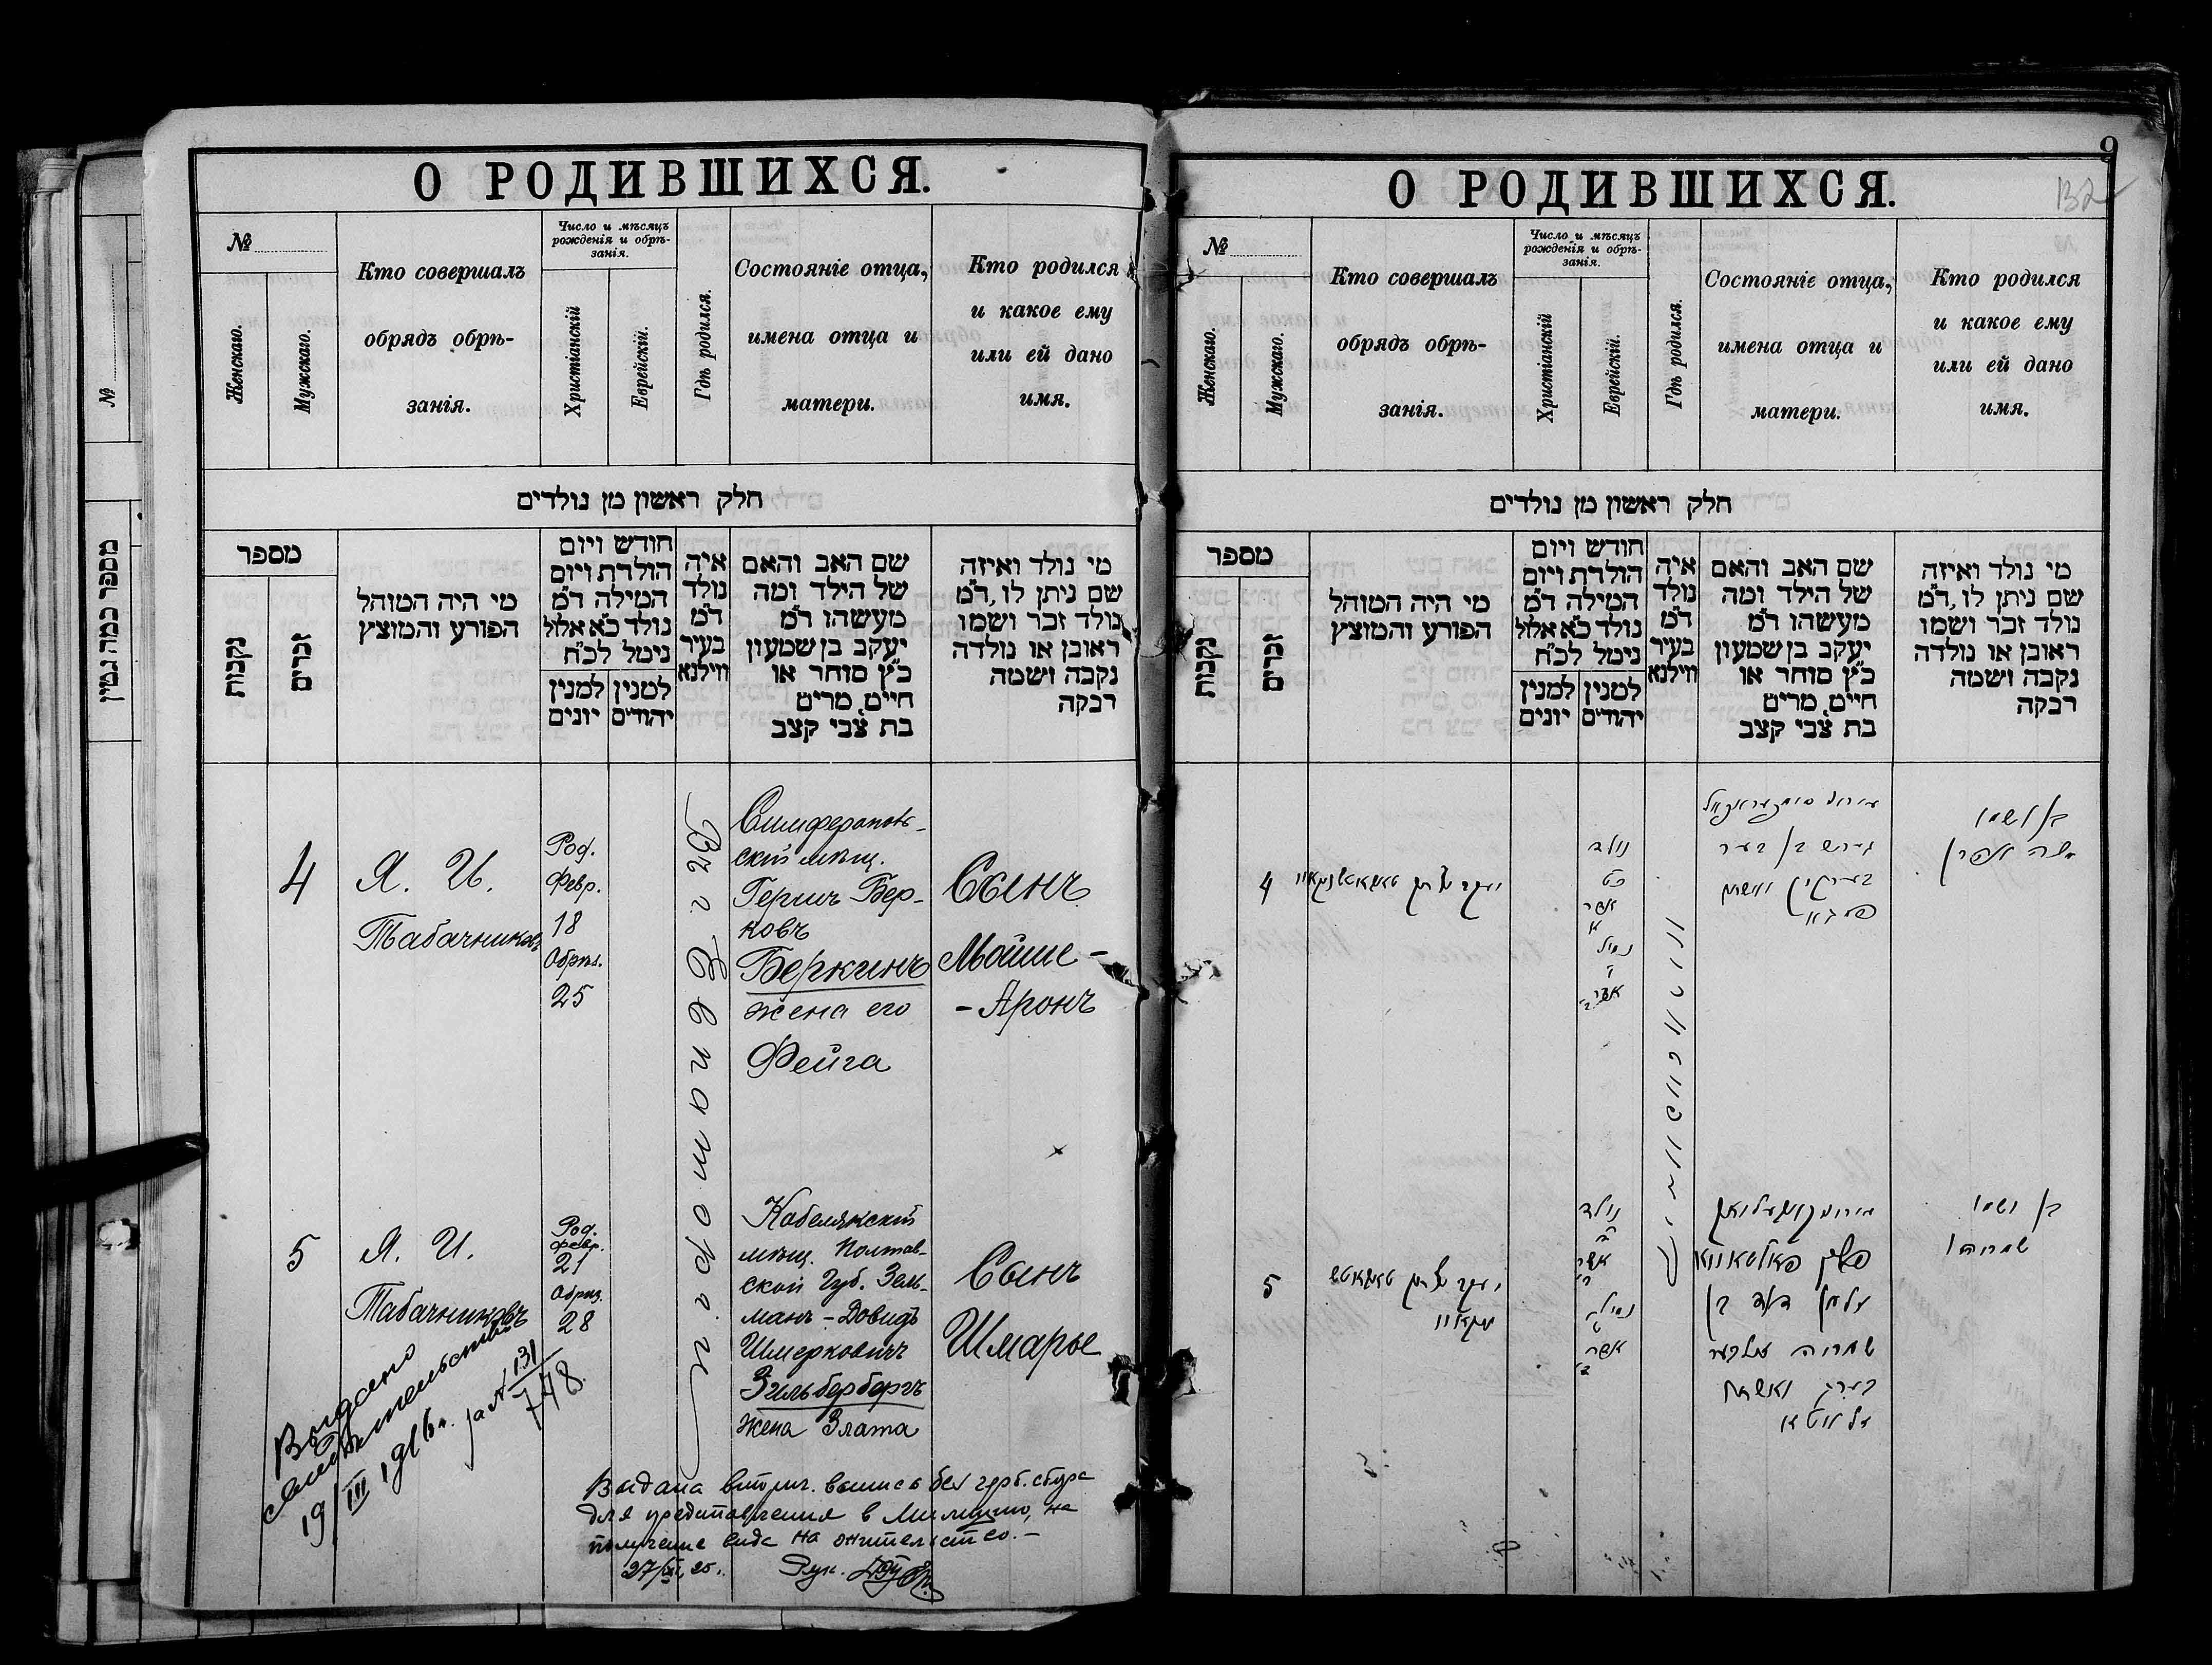 О РОДИВШИХСЯ.
№
Женскаго.
Мужскаго.
Кто совершалъ
обрядъ обрѣ-
занія.
Число и мѣсяцъ
рожденія и обрѣ-
занія.
Христіанскій
Еврейскій.
Гдѣ родился.
Состояніе отца,
имена отца и
матери.
Кто родился
и какое ему
или ей дано
имя.
חלק ראשון מן נולדים
מספר
נקבות
זכרים
מי היה המוהל
הפורע והמוצץ
חודש ויום
הולדת ויום
המילה ד״מ
נולד כ״א אלול
נימל לכ״ח
למנין יהודים
למנין יונים
איה
נולד
ד״מ
בעיר
ווילנא
שם האב והאם
של הילד ומה
מעשהו ד״מ
יעקב בן שמעון
כ״ץ סוחר או
חיים, מרים
בת צבי קצב
מי נולד ואיזה
שם ניתן לו, ד״מ
נולד זכר ושמו
ראובן או נולדה
נקבה ושמה
רבקה
4
Я. И.
Табачниковъ
Род.
Февр.
18
Обрѣз.
25
Въ г. Евпаторіи
Симферополь-
скій мѣщ.
Гершъ Бер-
ковъ
Беркинъ
жена его
Фейга
Сынъ
Мойше-
-Аронъ
5
Я. И.
Табачниковъ
Род.
Февр.
21
Обрѣз.
28
Кобелякскій
мѣщ. Полтав-
ской Губ. Зель-
манъ-Довидъ
Шмерковичъ
Зильбербергъ
жена Злата
Сынъ
Шмарье
Выдано
свидѣтельство
19/III 1916 г. за № 131
748
Выдана вторич. выпись без герб. сбора
для представления в Милицию, на
получение вида на жительство.-
Рук.
9
О РОДИВШИХСЯ.
№
Женскаго.
Мужскаго.
Кто совершалъ
обрядъ обрѣ-
занія.
Число и мѣсяцъ
рожденія и обрѣ-
занія.
Христіанскій
Еврейскій.
Гдѣ родился.
Состояніе отца,
имена отца и
матери.
Кто родился
и какое ему
или ей дано
имя.
חלק ראשון מן נולדים
מספר
נקבות
זכרים
מי היה המוהל
הפורע והמוצץ
חודש ויום
הולדת ויום
המילה ד״מ
נולד כ״א אלול
נימל לכ״ח
למנין יהודים
למנין יונים
איה
נולד
ד״מ
בעיר
ווילנא
שם האב והאם
של הילד ומה
מעשהו ד״מ
יעקב בן שמעון
כ״ץ סוחר או
חיים, מרים
בת צבי קצב
מי נולד ואיזה
שם ניתן לו, ד״מ
נולד זכר ושמו
ראובן או נולדה
נקבה ושמה
רבקה
4
נולד
כט
אדר
א
נמול
ו
אדר ב
בן ושמו
משה אהרן
5
נולד
ב
אדר
ב
נמול
ט
אדר
ב
זלמן דוד בן
שמריה זילבער
בערג ואשתו
זלאטא
בן ושמו
שמריהו